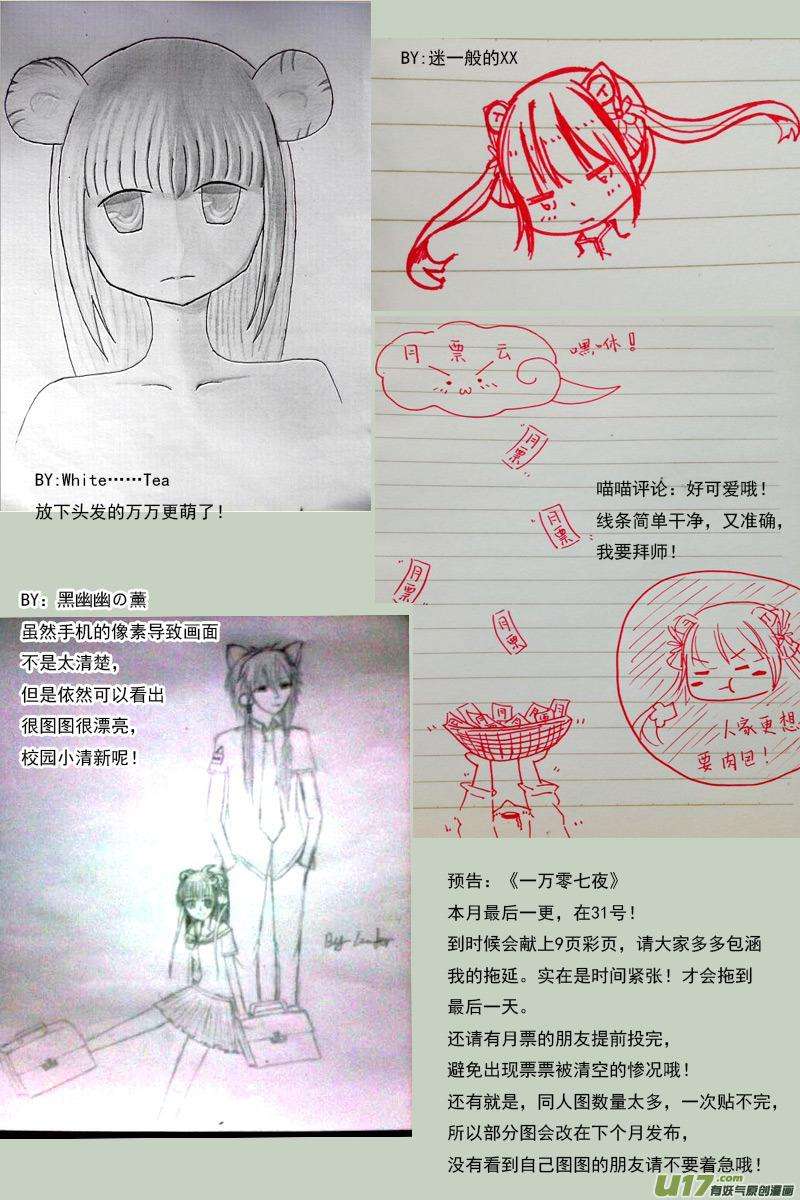 BY:迷一般的XX
BY:White……Tea
放下头发的万万更萌了！
月票云
嘿咻！
月票
月票
月票
月票
喵喵评论：好可爱哦！
线条简单干净，又准确，
我要拜师！
人家更想
要肉包！
BY：黑幽幽の薰
虽然手机的像素导致画面
不是太清楚，
但是依然可以看出
很图图很漂亮，
校园小清新呢！
预告：《一万零七夜》
本月最后一更，在31号！
到时候会献上9页彩页，请大家多多包涵
我的拖延。实在是时间紧张！才会拖到
最后一天。
还请有月票的朋友提前投完，
避免出现票票被清空的惨况哦！
还有就是，同人图数量太多，一次贴不完，
所以部分图会改在下个月发布，
没有看到自己图图的朋友请不要着急哦！
U17.com
有妖气原创漫画